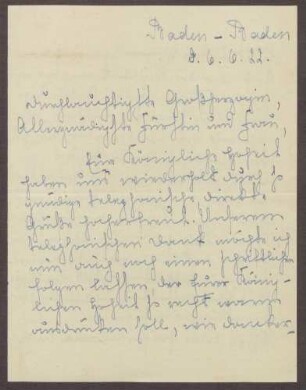 Baden-Baden
d. 6. 6. 22.
Durchlauchtigste Großherzogin,
Allergnädigste Fürstin und Frau,
Eure Königliche Hoheit
haben uns wiederholt durch so
gnädige telephonische direkte
Grüße hocherfreut. Unserem
telephonischen Dank möchte ich
nun auch noch einen schriftlichen
folgen lassen, der Eurer König-
lichen Hoheit so recht warm
ausdrücken soll, wie dankbar